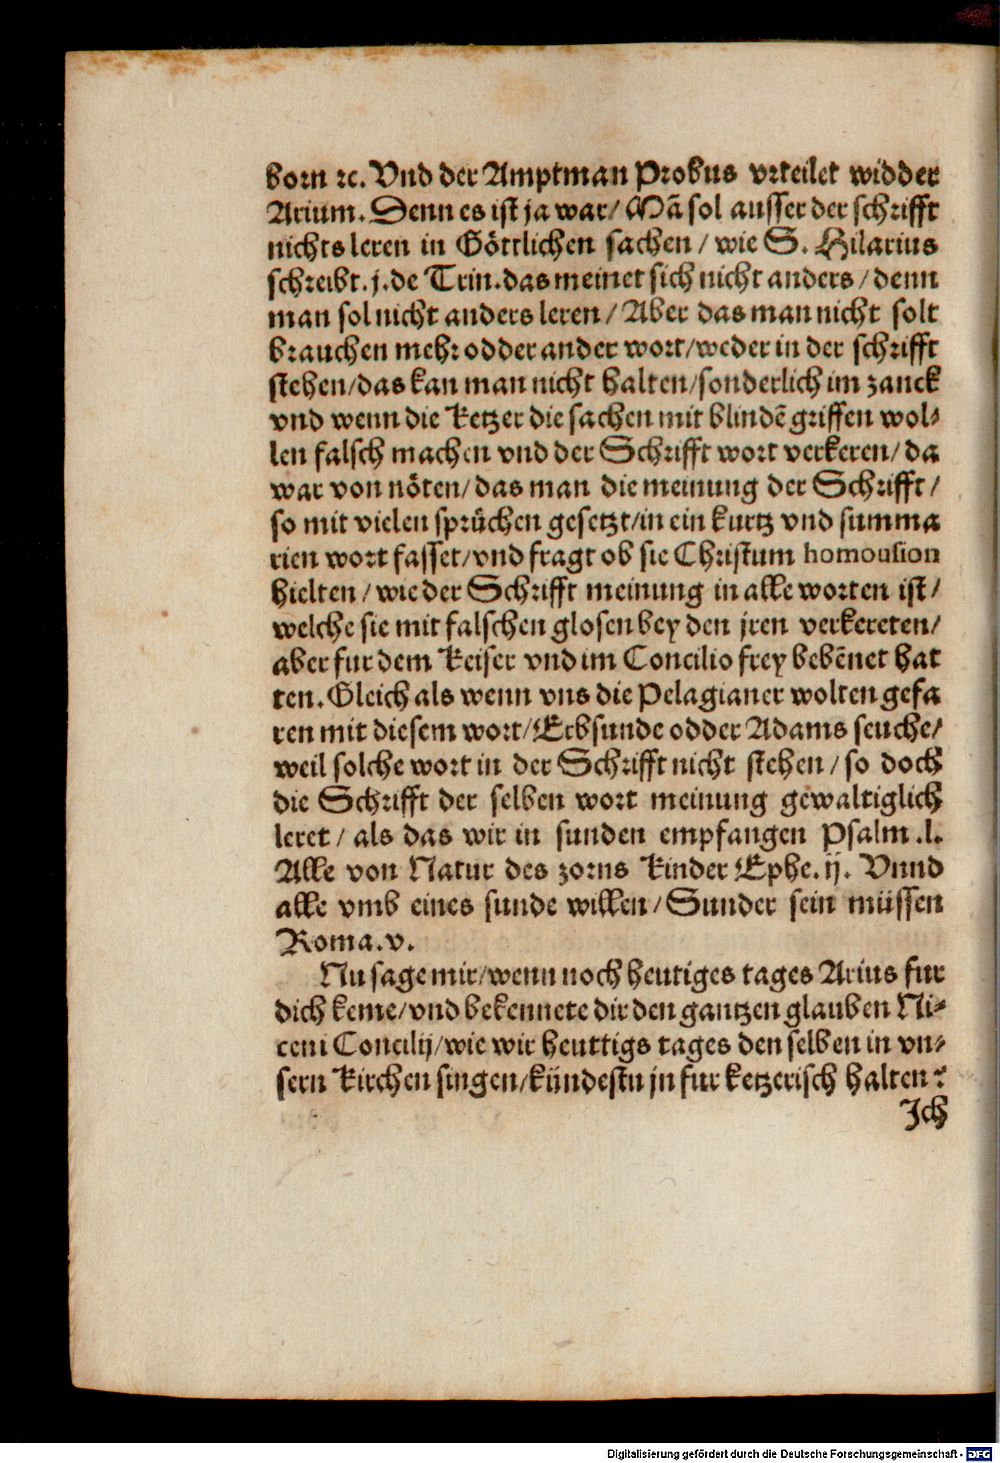 born ꝛc. Vnd der Amptman Probus vrteilet widder
Arium. Denn es ist ja war/ Mā sol ausser der schrifft
nichts leren in Göttlichen sachen/ wie S. Hilarius
schreibt. j. de Trin. das meinet sich nicht anders/ denn
man sol nicht anders leren/ Aber das man nicht solt
brauchen mehr odder ander wort/ weder in der schrifft
stehen/ das kan man nicht halten/ sonderlich im zanck
vnd wenn die Ketzer die sachen mit blindē griffen wol-
len falsch machen vnd der Schrifft wort verkeren/ da
war von nöten/ das man die meinung der Schrifft/
so mit vielen sprüchen gesetzt/ in ein kurtz vnd summa
rien wort fasset/ vnd fragt ob sie Christum homousion
hielten/ wie der Schrifft meinung in alle worten ist/
welche sie mit falschen glosen bey den jren verkereten/
aber fur dem Keiser vnd im Concilio frey bekēnet hat
ten. Gleich als wenn vns die Pelagianer wolten gefa
ren mit diesem wort/ Erbsunde odder Adams seuche/
weil solche wort in der Schrifft nicht stehen/ so doch
die Schrifft der selben wort meinung gewaltiglich
leret/ als das wir in sunden empfangen Psalm .l.
Alle von Natur des zorns Kinder Ephe. ij. Vnnd
alle vmb eines sunde willen/ Sunder sein müssen
Roma. v.
Nu sage mir/ wenn noch heutiges tages Arius fur
dich keme/ vnd bekennete dir den gantzen glauben Ni-
ceni Concilij/ wie wir heuttigs tages den selben in vn-
sern Kirchen singen/ kündestu jn fur ketzerisch halten?
Ich
Digitalisierung gefördert durch die Deutsche Forschungsgemeinschaft - DFG